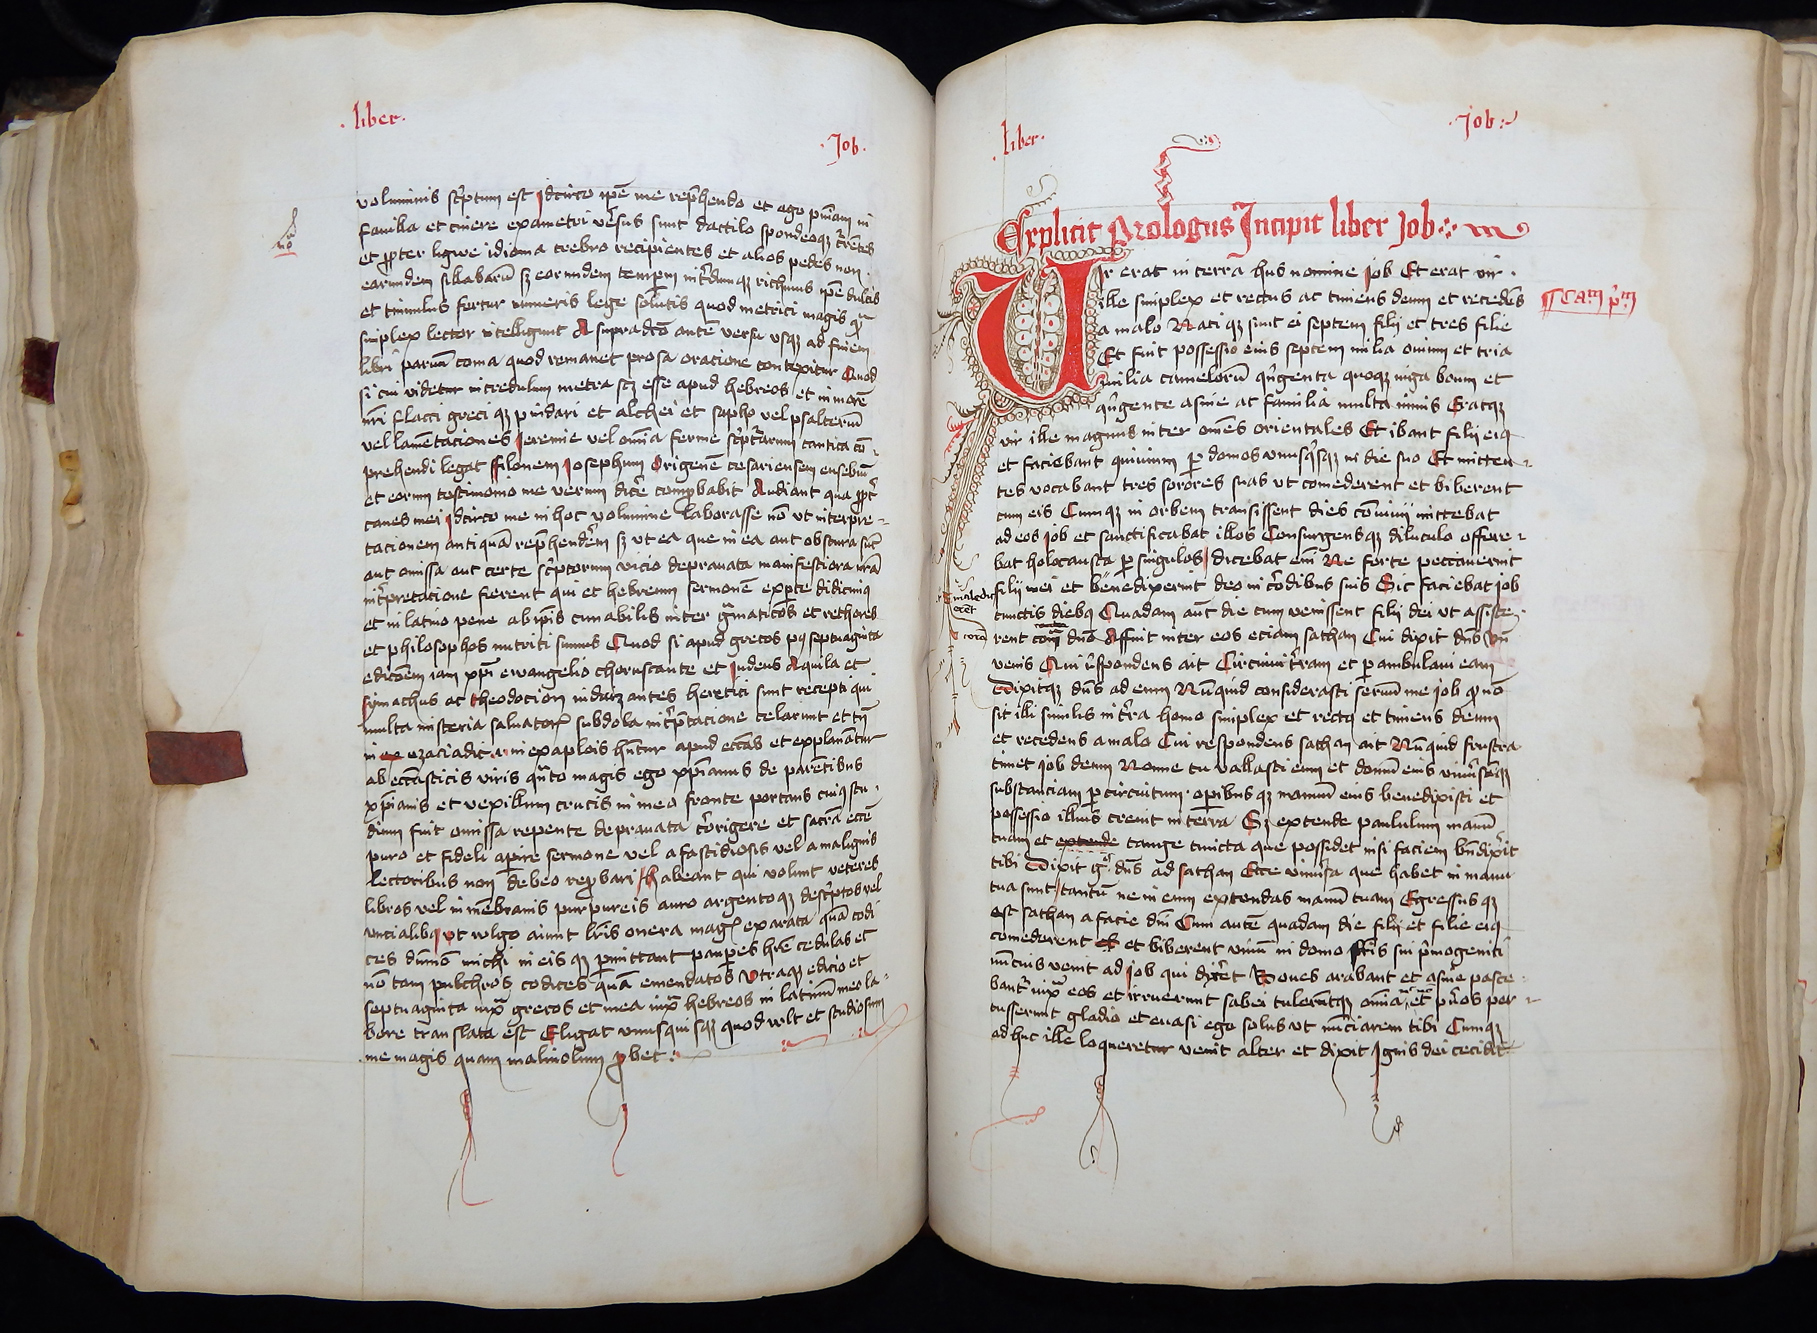 liber.
Job.
voluminis sc̄ptum est Idcirco ip̄e me rep̄hendo et ago pn̄iam in
familia et cinere exametri v̄sus sunt dactilo spondeoqꝫ c̄rentes
et ꝓpter ligwe idioma crebro recipientes et alios pedes non
earundem sillabarū sꝫ eorundem tempꝝ int̄dumqꝫ richmus ip̄e dulcis
et tinnulus fertur numeris lege solutis quod metrici magis qͣ
simplex lector intelligunt A supradc̄o autē versu vsqꝫ ad finem
libri paruū coma quod remanet prosa oratione contexitur Quod
si cui videtur incredulum metra scꝫ esse apud hebreos et in morē
nr̄i flacci greciqꝫ pindari et alchei et sapho vel psalteriū
vel lamētaciones Jeremie vel om̄ia ferme sc̄pturarum cantica cō
prehendi legat filonem Josephum Origenē cesariensem eusebiū
et eorum testimonio me verum dic̄e comꝓbabit Audiant qua ꝓpt̄
canes mei Idcirco me in hoc volumine laborasse nō vt interpre
tacionem antiquā rep̄hender̄m sꝫ vt ea que in ea aut obscura sūt
aut omissa aut certe sc̄ptorum vicio deprauata manifestiora nr̄a
int̄pretacione fierent qui et hebreum sermonē ex ꝑte didicimꝰ
et in latino pene ab ip̄is cunabilis inter gͣmaticos et rethores
et philosophos nutriti sumus Quod si apud grecos pꝰ septuaginta
edic̄oem iam xp̄i ewangelio choruscante et Judeus Aquila et
symachus ac theodocion iudaꝫantes heretici sunt recepti qui
multa misteria saluatorꝭ subdola int̄p̄tacione celarunt et tn̄
in exaplois hn̄tur apud ecc̄as et explanātur
ab ecc̄asticis viris qͣnto magis ego xp̄ianus de parētibus
xp̄ianis et vexillum crucis in mea fronte portans cuiꝰ stu
dium fuit omissa repente deprauata c̄origere et sacrā ecc̄e
puro et fideli aperire sermone vel a fastidiosis vel a malignis
lectoribus non debeo reꝓbari Habeant qui volunt veteres
libros vel in mēbranis purpureis auro argentoqꝫ desc̄ptos vel
vncialibꝰ vt wlgo aiunt lr̄is onera magꝭ exarata quā codi
ces dūmō michi meisqꝫ ꝑmittant pauperes hr̄e cedulas et
nō tam pulchros codices quā emendatos Vtraqꝫ edicio et
septuaginta iuxͣ grecos et mea iuxͣ hebreos in latinū meo la
bore translata est Eligat vnusquisqꝫ quod wlt et studiosum
me magis quam maliuolum ꝓbet
liber.
Job
Explicit Prologus Incipit liber Job
Vir erat in terra hus nomine Job Et erat vir
ille simplex et rectus ac timens deum et recedēs
a malo Natiqꝫ sunt ei septem filij et tres filie
Et fuit possessio eius septem milia ouium et tria
milia camelorū qn̄genta quoqꝫ iuga boum et
qn̄gente asine ac familia multa nimis Eratqꝫ
vir ille magnus inter om̄es orientales Et ibant filij eiꝰ
et faciebant quiuium ꝑ domos vnusqͥsqꝫ in die suo Et mitten
tes vocabant tres sorores suas vt comederent et biberent
cum eis Cumqꝫ in orbem transissent dies cōuiuij mittebat
ad eos Job et sanctificabat illos Consurgensqꝫ diluculo offere
bat holocausta ꝑ singulos dicebat em̄ Ne forte peccauerint
filij mei et benedixerint deo in c̄ordibus suis Sic faciebat Job
cunctis diebꝰ Quadam aūt die cum venissent filij dei vt assiste
rent corā dn̄o Affuit inter eos eciam sathan Cui dixit dn̄s Vn̄
venis Qui r̄spondens ait Circuiui t̄ram et ꝑambulaui eam
Dixitqꝫ dn̄s ad eum Nūquid considerasti seruū meū Job qͦ nō
sit illi similis in t̄ra homo simplex et rectꝰ et timens deum
et recedens a malo Cui respondens sathan ait Nūquid frustra
timet Job deum Nonne tu vallasti eum et domū eius vniu̅sāqꝫ
substanciam ꝑ circuitum operibusqꝫ manuū eius benedixisti et
possessio illius creuit in terra Sꝫ extende paululum manū
tuam et extende tange cuncta que possidet nisi faciem bn̄dixit
tibi Dixit gͦ dn̄s ad sathan Ecce vniu̅sa que habet in manu
tua sunt tantū ne in eum extendas manū tuam Egressusqꝫ
est sathan a facie dn̄i Cum autē quadam die filij et filie eiꝰ
comederent et biberent vinū in domo fr̄is sui pͥmogeniti
nūcius venit ad Job qui dixit Boues arabant et asine pasce
bantᷣ iuxͣ eos et irruerunt sabei tulerūtqꝫ om̄ia et pu̅os per
cusserunt gladio et euasi ego solus vt nūciarem tibi Cumqꝫ
adhuc ille loqueretur venit alter et dixit Ignis dei cecidit
Cam pͥm
maledix
erint
corā